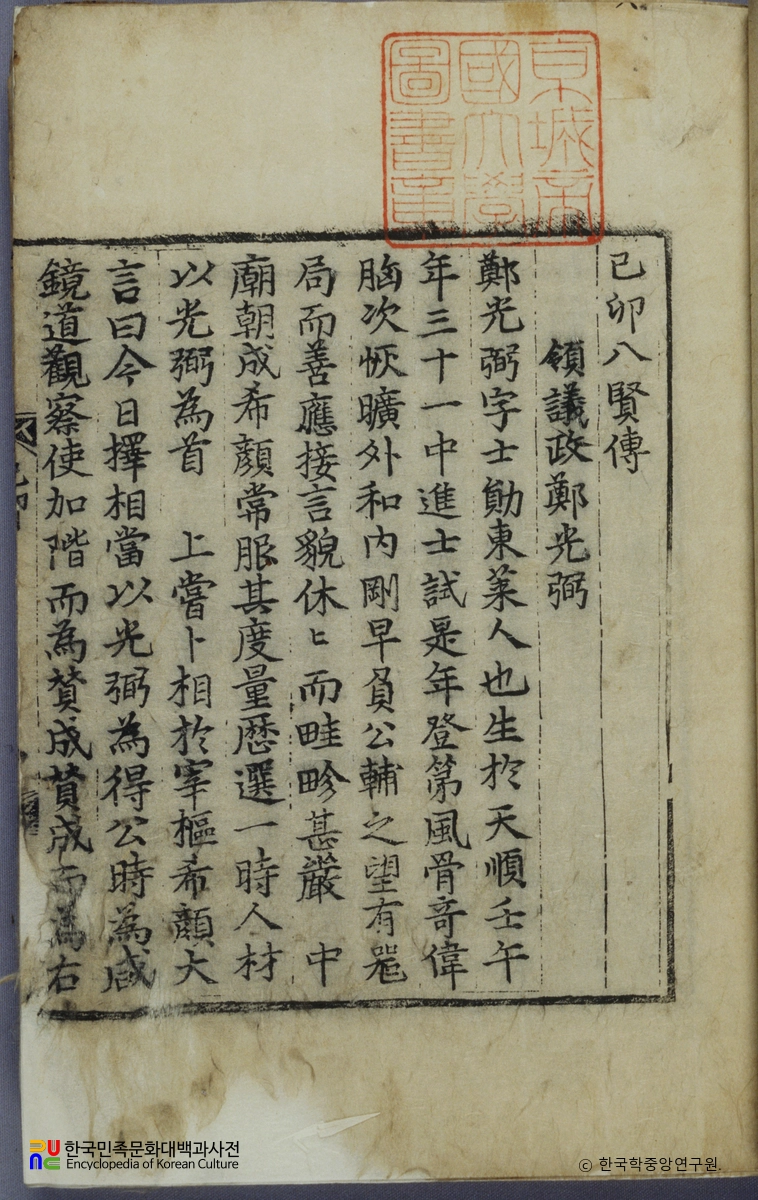 京城帝
國大學
圖書章
己卯八賢傳
領議政鄭光弼
鄭光弼字士勛東萊人也生於天順壬午
年三十一中進士試是年登第風骨奇偉
胸次恢曠外和內剛早負公輔之望有器
局而善應接言貌休〻而畦畛甚嚴 中
廟朝成希顔常服其度量歷選一時人材
以光弼為首 上嘗卜相於宰樞希顔大
言曰今日擇相當以光弼為得公時為咸
鏡道觀察使加階而為贊成贊成而為右
한국민족문화대백과사전
Encyclopedia of Korean Culture
© 한국학중앙연구원